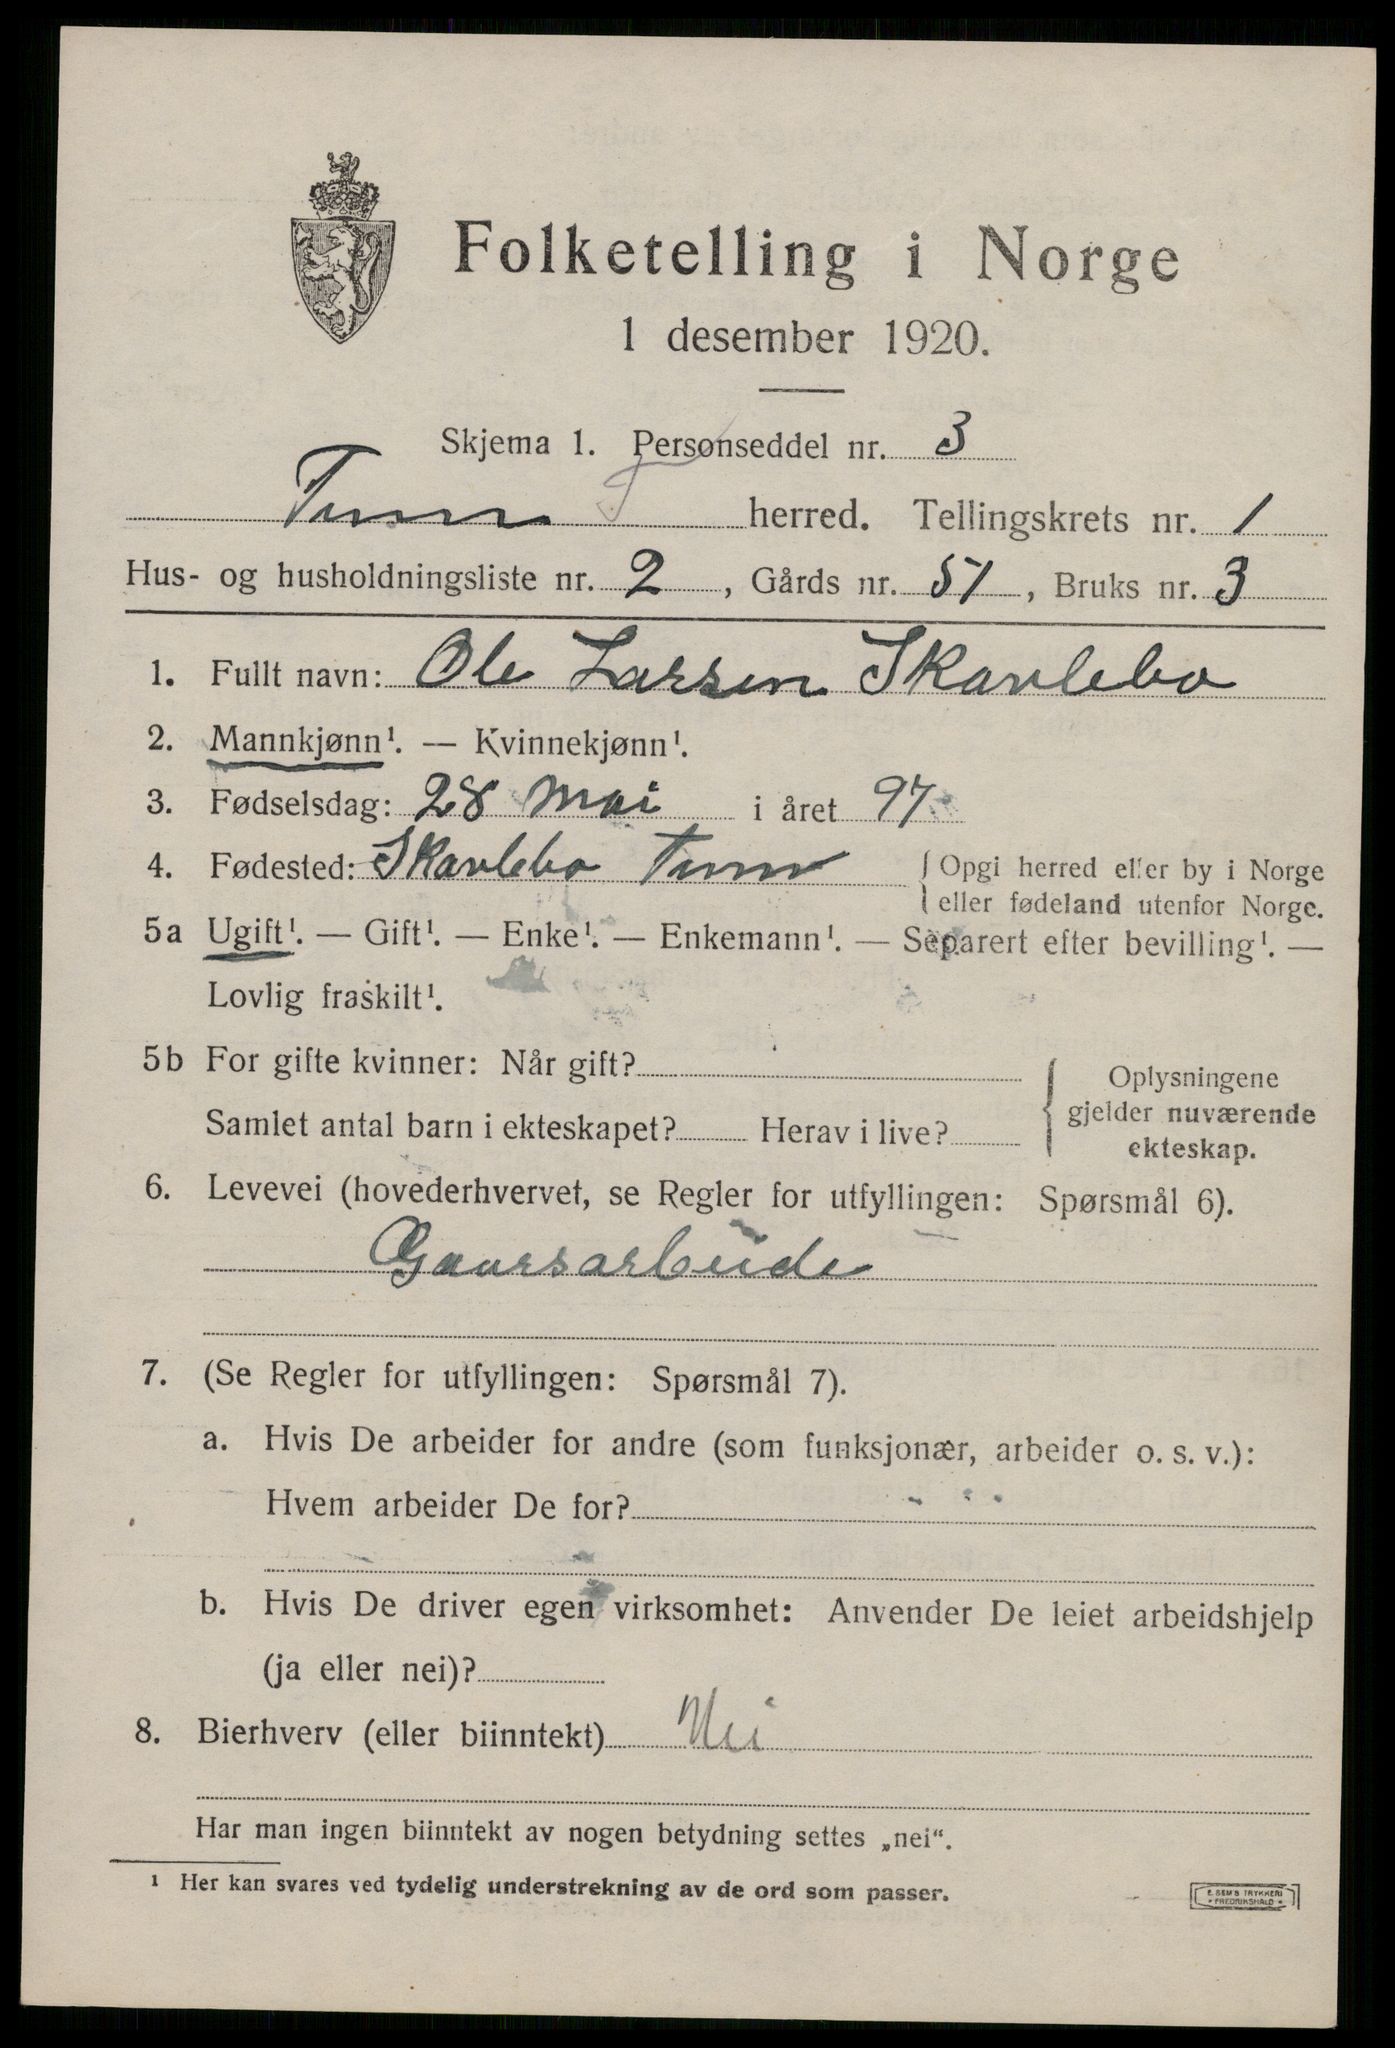 Folketelling i Norge
1 desember 1920.
Skjema 1. Personseddel nr. 3
Tune herred. Tellingskrets nr. 1
Hus- og husholdningsliste nr. 2, Gårds nr. 51, Bruks nr. 3
1. Fullt navn: Ole Larsen Skavlebo
2. Mannkjønn¹. — Kvinnekjønn¹.
3. Fødselsdag: 28 mai i året 97
4. Fødested: Skavlebo Tune { Opgi herred eller by i Norge
{ eller fødeland utenfor Norge.
5a Ugift¹. — Gift¹. — Enke¹. — Enkemann¹. — Separert efter bevilling¹. —
Lovlig fraskilt¹.
5b For gifte kvinner: Når gift?
Samlet antal barn i ekteskapet? Herav i live?
Oplysningene
gjelder nuværende
ekteskap.
6. Levevei (hovederhvervet, se Regler for utfyllingen: Spørsmål 6).
Gaarsarbeide
7. (Se Regler for utfyllingen: Spørsmål 7).
a. Hvis De arbeider for andre (som funksjonær, arbeider o. s. v.):
Hvem arbeider De for?
b. Hvis De driver egen virksomhet: Anvender De leiet arbeidshjelp
(ja eller nei)?
8. Bierhverv (eller biinntekt) Nei
Har man ingen biinntekt av nogen betydning settes „nei“.
¹ Her kan svares ved tydelig understrekning av de ord som passer.
E. SEM'S TRYKKERI
FREDRIKSHALD